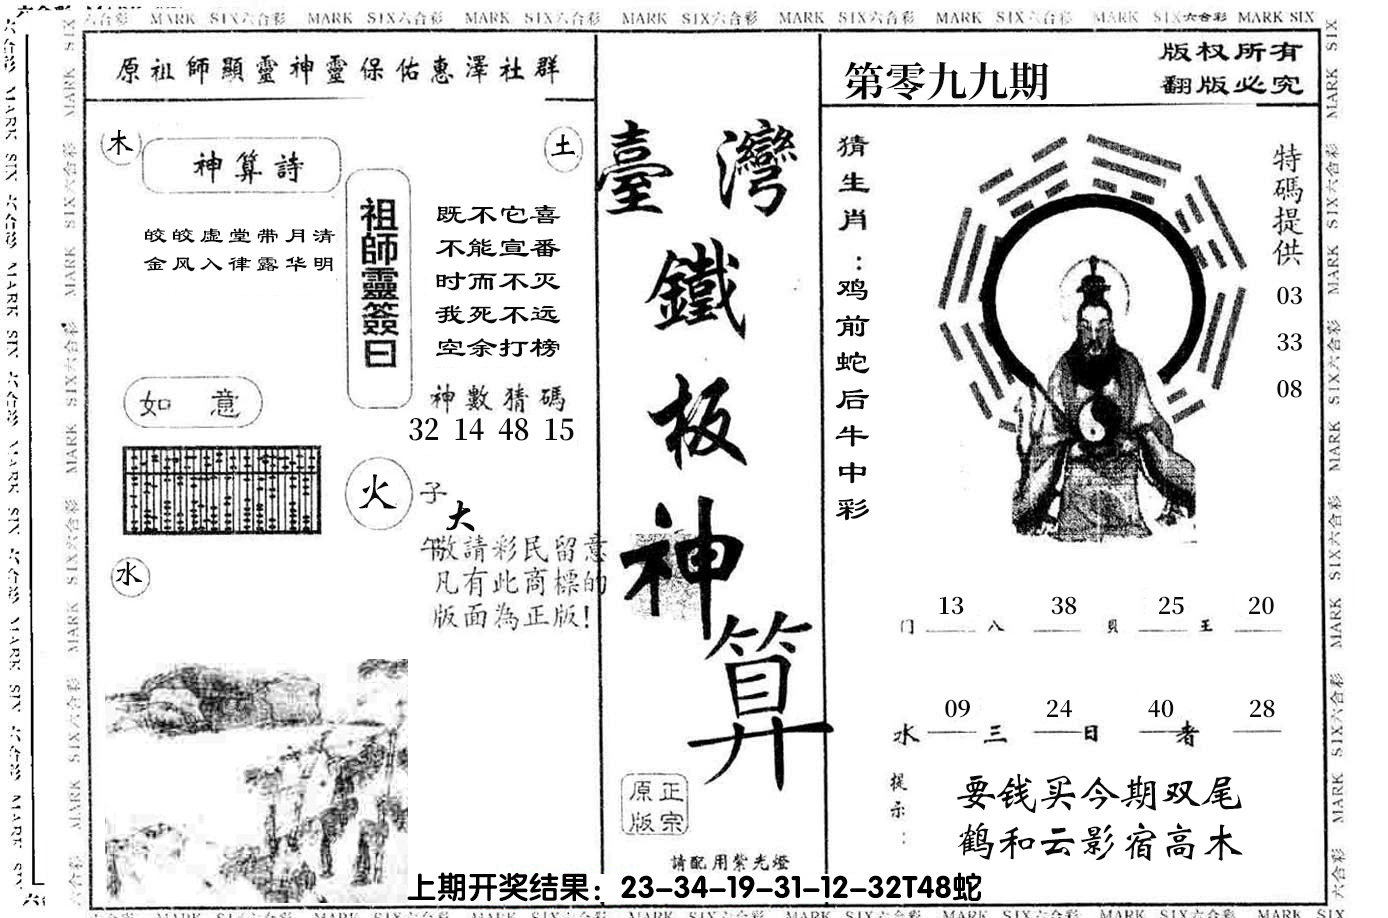 MARK SIX六合彩 MARK SIX六合彩 MARK SIX六合彩 MARK SIX六合彩 MARK SIX六合彩 MARK SIX六合彩 MARK SIX六合彩 MARK SIX
原祖師顯靈神靈保佑惠澤社群
木
土
神算詩
皎皎虚堂带月清
金风入律露华明
祖師靈簽曰
既不它喜
不能宣番
时而不灭
我死不远
空余打榜
神數猜碼
32 14 48 15
如意
火
水
子
大
午
敬請彩民留意
凡有此商標的
版面為正版!
臺灣
鐵
板
神
算
原正
版宗
請配用紫光燈
第零九九期
版权所有
翻版必究
猜生肖:鸡前蛇后牛中彩
特碼提供
03
33
08
13 38 25 20
门 八 貝 王
09 24 40 28
水 三 日 者
提示:
要钱买今期双尾
鹤和云影宿高木
上期开奖结果：23-34-19-31-12-32T48蛇